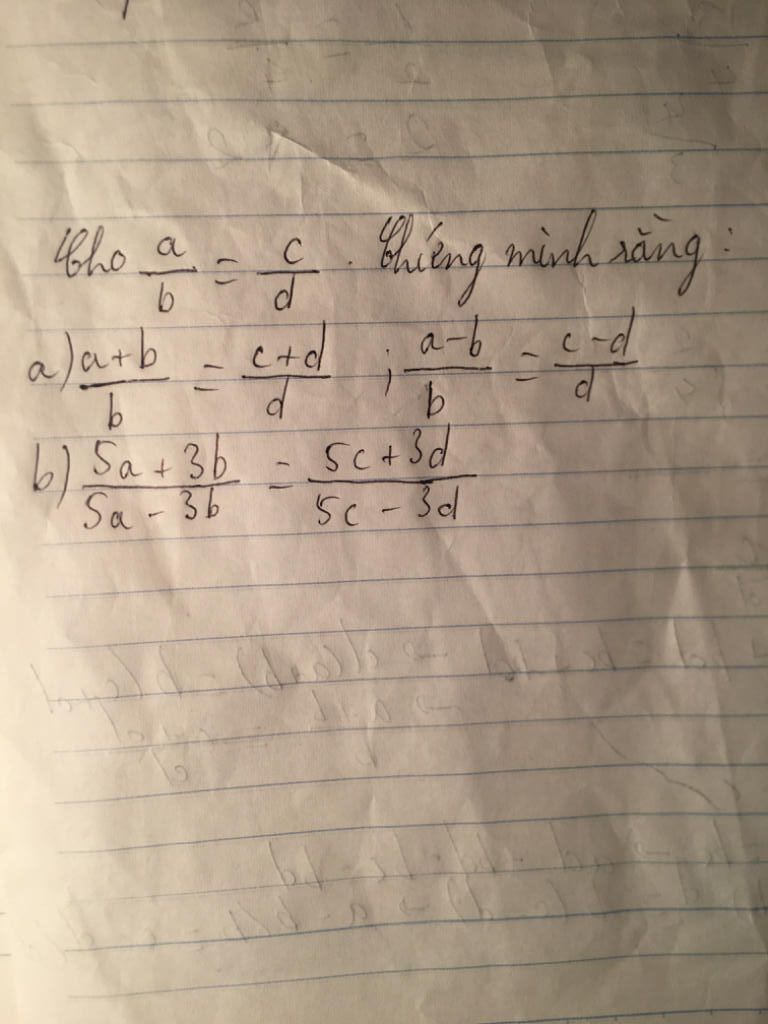 Cho a/b = c/d . Chứng minh rằng :
a) a+b/b = c+d/d ; a-b/b = c-d/d
b) 5a + 3b/5a - 3b = 5c + 3d/5c - 3d